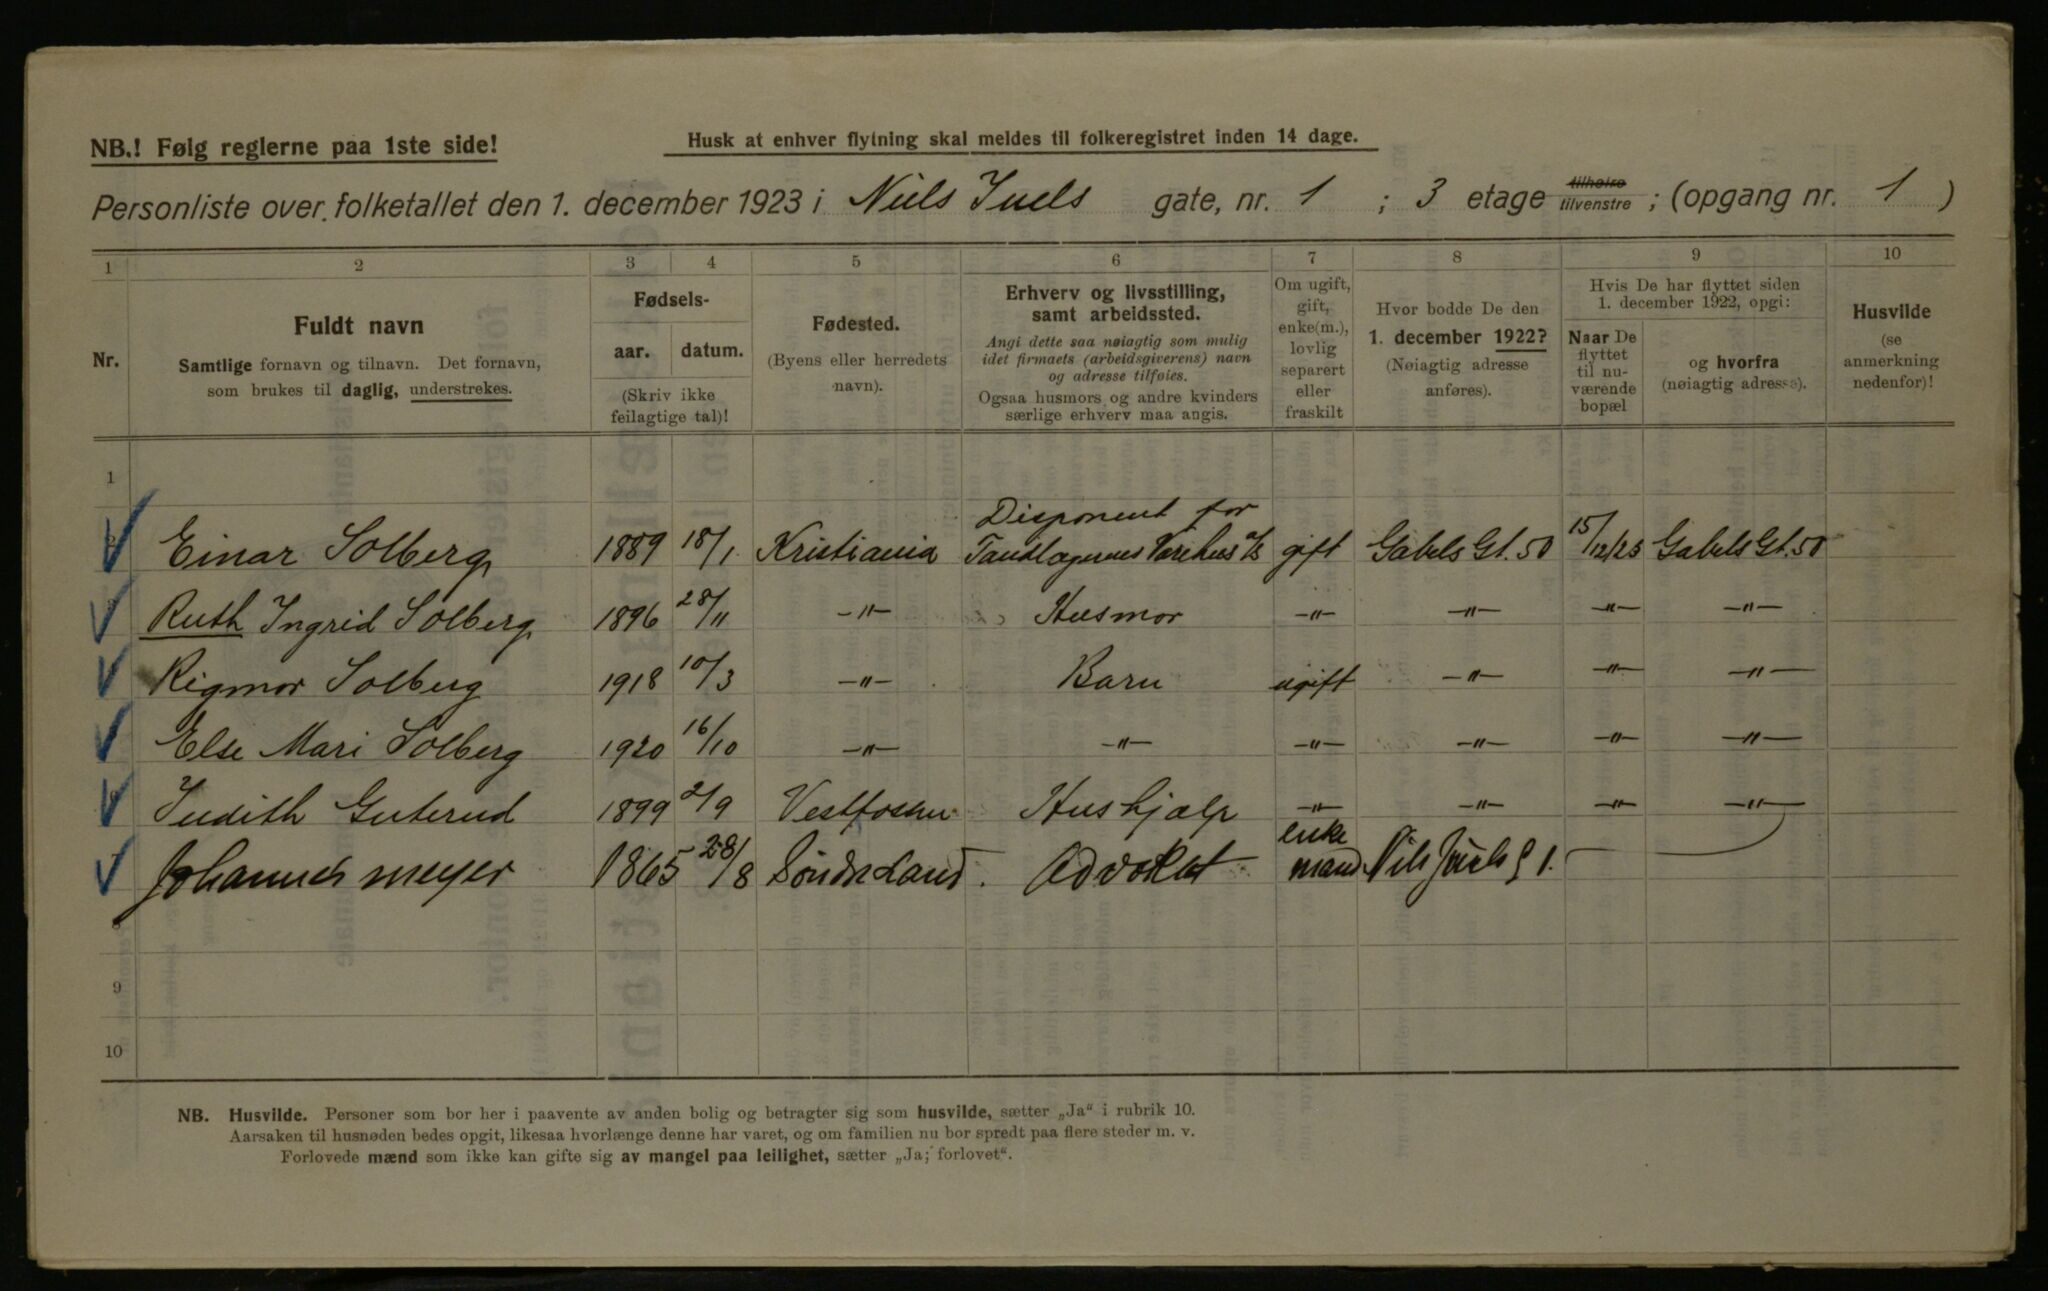 NB.! Følg reglerne paa 1ste side!
Husk at enhver flytning skal meldes til folkeregistret inden 14 dage.
Personliste over folketallet den 1. december 1923 i Niels Juels gate, nr. 1 ; 3 etage tilhøire tilvenstre ; (opgang nr. 1 )
1 2 3 4 5 6 7 8 9 10
Nr.
Fuldt navn
Samtlige fornavn og tilnavn. Det fornavn,
som brukes til daglig, understrekes.
Fødsels-
aar. datum.
(Skriv ikke
feilagtige tal)!
Fødested.
(Byens eller herredets
navn).
Erhverv og livsstilling,
samt arbeidssted.
Angi dette saa nøiagtig som mulig
idet firmaets (arbeidsgiverens) navn
og adresse tilføies.
Ogsaa husmors og andre kvinders
særlige erhverv maa angis.
Om ugift,
gift,
enke(m.),
lovlig
separert
eller
fraskilt
Hvor bodde De den
1. december 1922?
(Nøiagtig adresse
anføres).
Hvis De har flyttet siden
1. december 1922, opgi:
Naar De
flyttet
til nu-
værende
bopæl
og hvorfra
(nøiagtig adresse).
Husvilde
(se
anmerkning
nedenfor)!
1
Disponent for
Einar Solberg 1889 18/1 Kristiania Tandlægernes Varehus A/S gift Gabels Gt. 50 15/12/23 Gabels Gt. 50
Ruth Ingrid Solberg 1896 28/11 -"- Husmor -"- -"- -"- -"-
Rigmor Solberg 1918 10/3 -"- Barn ugift -"- -"- -"-
Else Mari Solberg 1920 16/10 -"- -"- -"- -"- -"- -"-
Judith Guterud 1899 2/9 Vestfossen Hushjælp -"- -"- -"- -"-
Johannes Meyer 1865 28/8 Advokat enke mand Nils Juels g 1.
8
9
10
NB. Husvilde. Personer som bor her i paavente av anden bolig og betragter sig som husvilde, sætter „Ja“ i rubrik 10.
Aarsaken til husnøden bedes opgit, likesaa hvorlænge denne har varet, og om familien nu bor spredt paa flere steder m. v.
Forlovede mænd som ikke kan gifte sig av mangel paa leilighet, sætter „Ja; forlovet“.